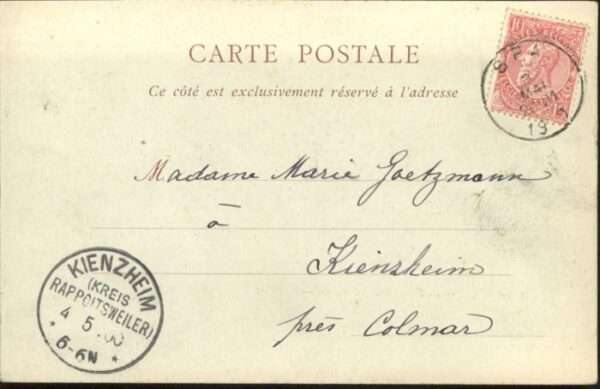 CARTE POSTALE
Ce côté est exclusivement réservé à l'adresse
10
Madame Marie Goetzmann
à
Kienzheim
près Colmar
KIENZHEIM
(KREIS
RAPPOLTSWEILER)
4 5 00
* 6-6N *